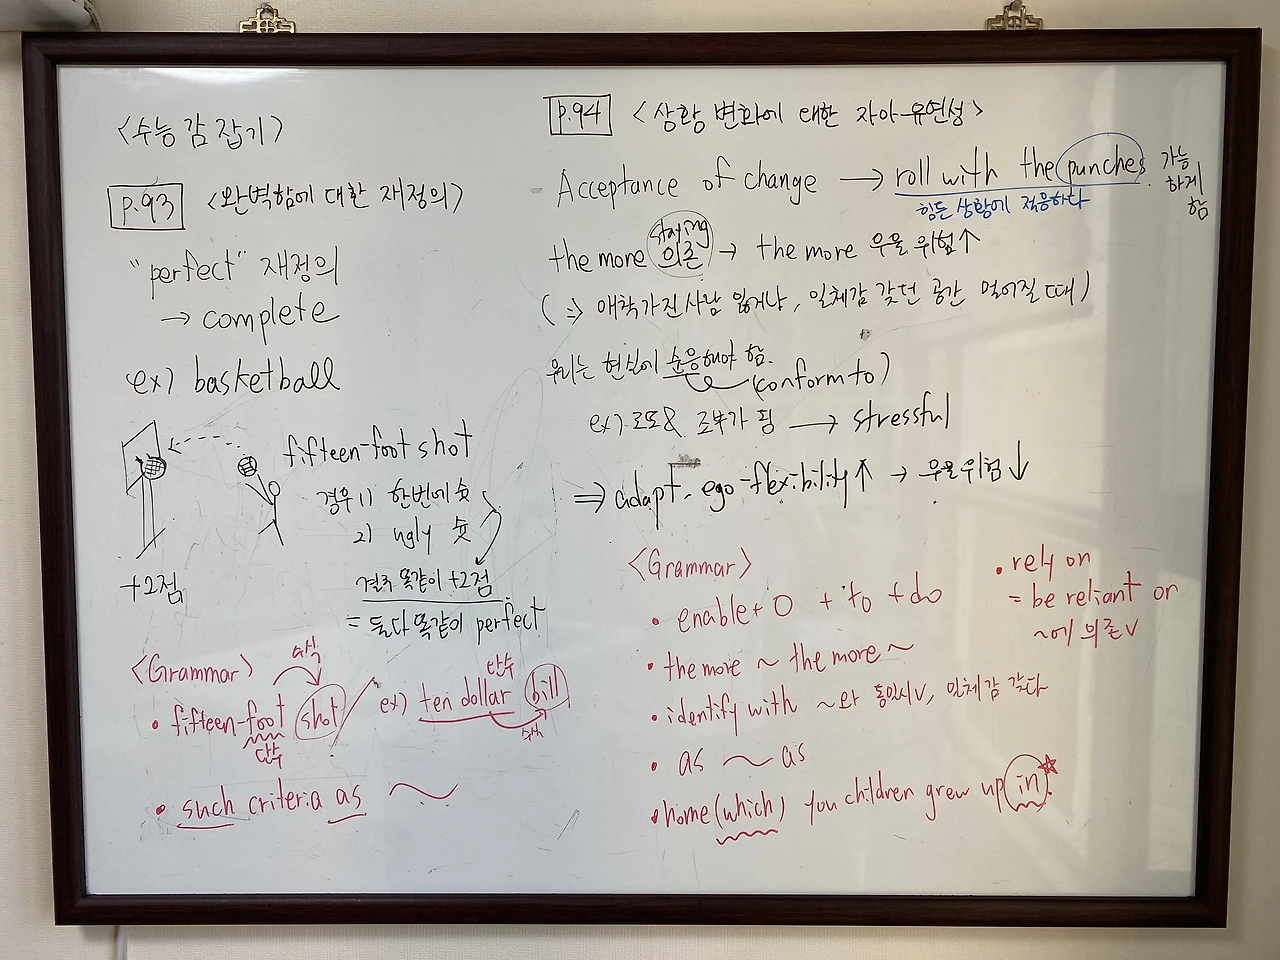 <수능 감 잡기>
p.93 <완벽함에 대한 재정의>
"perfect" 재정의
→ complete
ex) basketball
fifteen-foot shot
경우 1) 한번에 슛
2) ugly 슛
+2점
결국 똑같이 +2점
= 둘다 똑같이 perfect
<Grammar>
수식
• fifteen-foot shot
단수
ex) ten dollar bill
단수
수식
• such criteria as ~
p.94 <상황 변화에 대한 자아 유연성>
Acceptance of change → roll with the punches.
가능하게 함
힘든 상황에 적응하다
staying
the more 의존 → the more 우울 위험↑
(⇒ 애착가진 사람 잃거나, 일체감 갖던 공간 멀어질 때)
우리는 현실에 순응해야 함.
(conform to)
ex) 로또& 조부가 됨 → stressful
⇒ adapt, ego-flexibility↑ → 우울위험↓
<Grammar>
• enable + O + to + do
• the more ~ the more ~
• identify with ~와 동일시v, 일체감 갖다
• as ~ as
• home (which) you children grew up in
• rely on
= be reliant on
~에 의존v